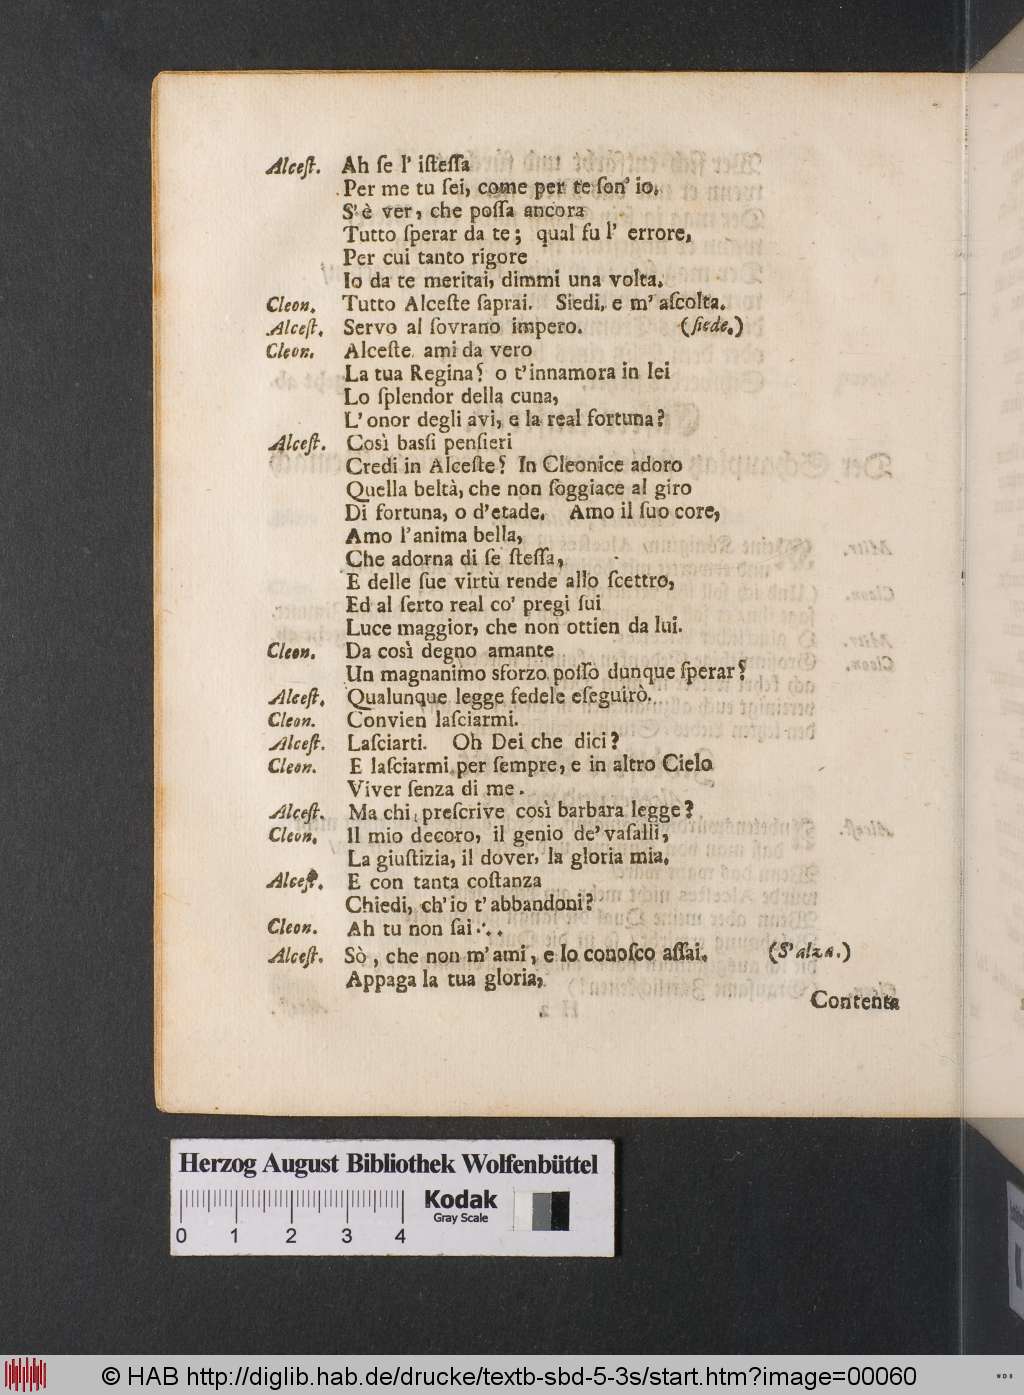 Alceſt. Ah ſe l' iſteſſa
Per me tu ſei, come per te ſon' io,
S'è ver, che poſſa ancora
Tutto ſperar da te; qual fu l' errore,
Per cui tanto rigore
Io da te meritai, dimmi una volta.
Cleon. Tutto Alceſte ſaprai. Siedi, e m' aſcolta.
Alceſt. Servo al ſovrano impero. (ſiede.)
Cleon. Alceſte ami da vero
La tua Regina? o t'innamora in lei
Lo ſplendor della cuna,
L' onor degli avi, e la real fortuna?
Alceſt. Così baſſi penſieri
Credi in Alceſte? In Cleonice adoro
Quella beltà, che non ſoggiace al giro
Di fortuna, o d'etade. Amo il ſuo core,
Amo l'anima bella,
Che adorna di ſe ſteſſa,
E delle ſue virtù rende allo ſcettro,
Ed al ſerto real co' pregi ſui
Luce maggior, che non ottien da lui.
Cleon. Da così degno amante
Un magnanimo sforzo poſſo dunque ſperar?
Alceſt. Qualunque legge fedele eſeguirò.
Cleon. Convien laſciarmi.
Alceſt. Laſciarti. Oh Dei che dici?
Cleon. E laſciarmi per ſempre, e in altro Cielo
Viver ſenza di me.
Alceſt. Ma chi preſcrive così barbara legge?
Cleon. Il mio decoro, il genio de' vaſalli,
La giuſtizia, il dover, la gloria mia.
Alceſt. E con tanta coſtanza
Chiedi, ch'io t'abbandoni?
Cleon. Ah tu non ſai...
Alceſt. Sò, che non m'ami, e lo conoſco aſſai. (S'alza.)
Appaga la tua gloria,
Contenta
Herzog August Bibliothek Wolfenbüttel
Kodak
Gray Scale
0 1 2 3 4
© HAB http://diglib.hab.de/drucke/textb-sbd-5-3s/start.htm?image=00060